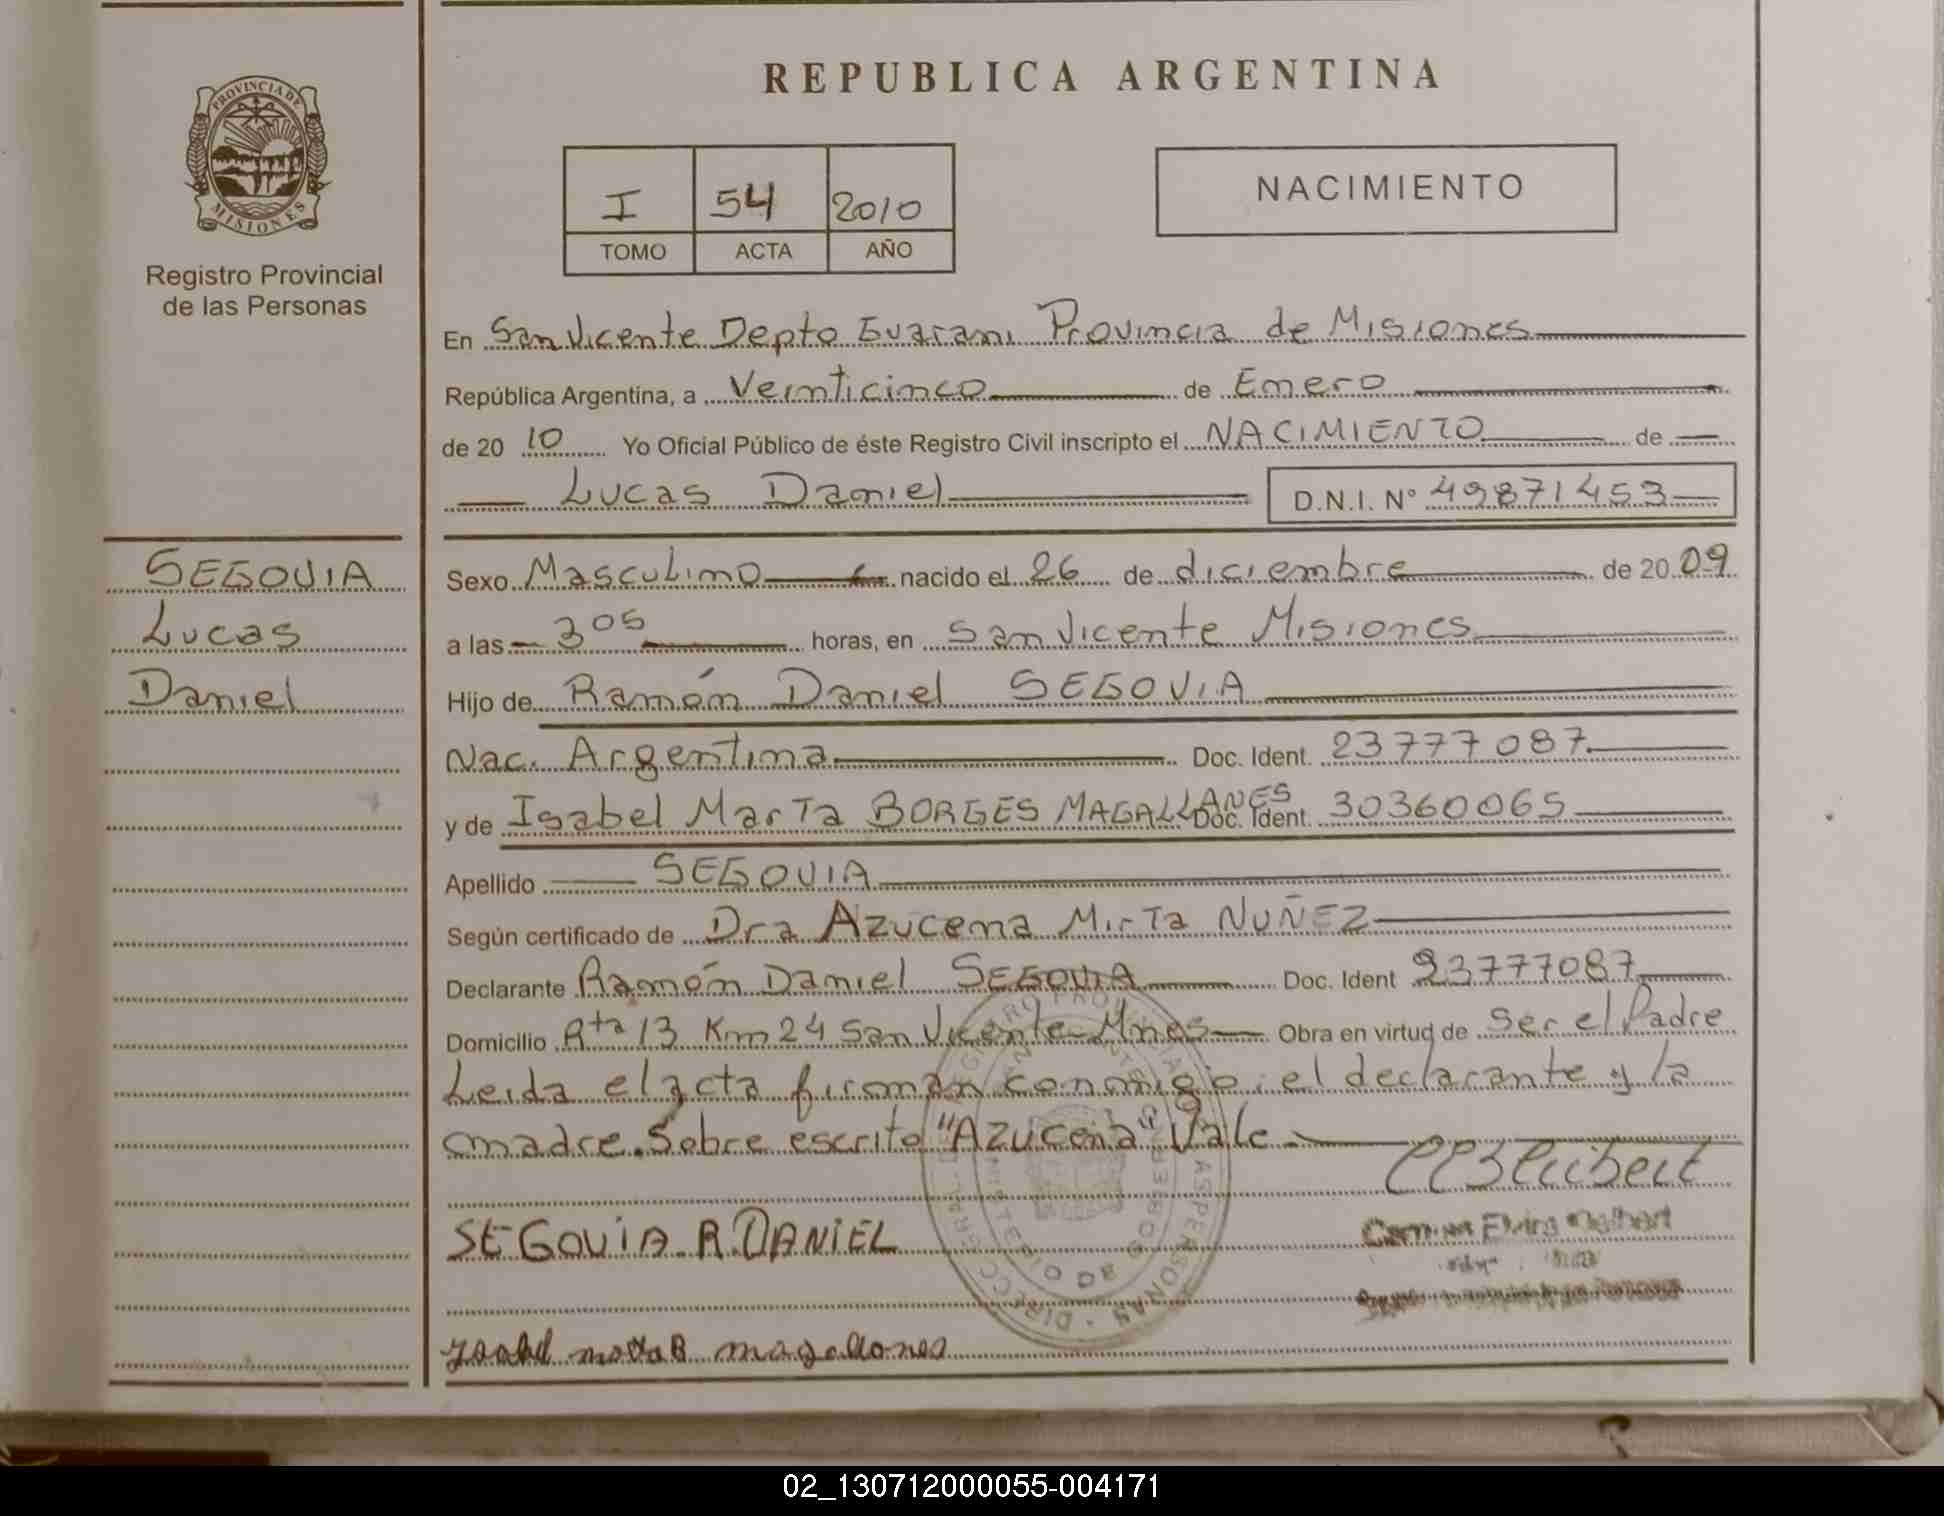 PROVINCIA DE
MISIONES
Registro Provincial
de las Personas
SEGOVIA
Lucas
Daniel
REPUBLICA ARGENTINA
I 54 2010
TOMO ACTA AÑO
NACIMIENTO
En San Vicente Depto Guarani Provincia de Misiones
República Argentina, a Veinticinco de Enero
de 20 10 Yo Oficial Público de éste Registro Civil inscripto el NACIMIENTO de
Lucas Daniel D.N.I. N° 49871453
Sexo Masculino nacido el 26 de diciembre de 20 09
a las 3 05 horas, en San Vicente Misiones
Hijo de Ramón Daniel SEGOVIA
Nac. Argentina Doc. Ident. 23777087
y de Isabel Marta BORGES MAGALLANES Doc. Ident. 30360065
Apellido SEGOVIA
Según certificado de Dra Azucena Mirta NUÑEZ
Declarante Ramón Daniel SEGOVIA Doc. Ident 23777087
Domicilio Rta 13 Km 24 San Vicente-Mnes Obra en virtud de Ser el Padre
Leida el acta firman conmigo el declarante y la
madre. Sobre escrito "Azucena" Vale
SEGOVIA R. DANIEL
Isabel marta B magallanes
02_130712000055-004171